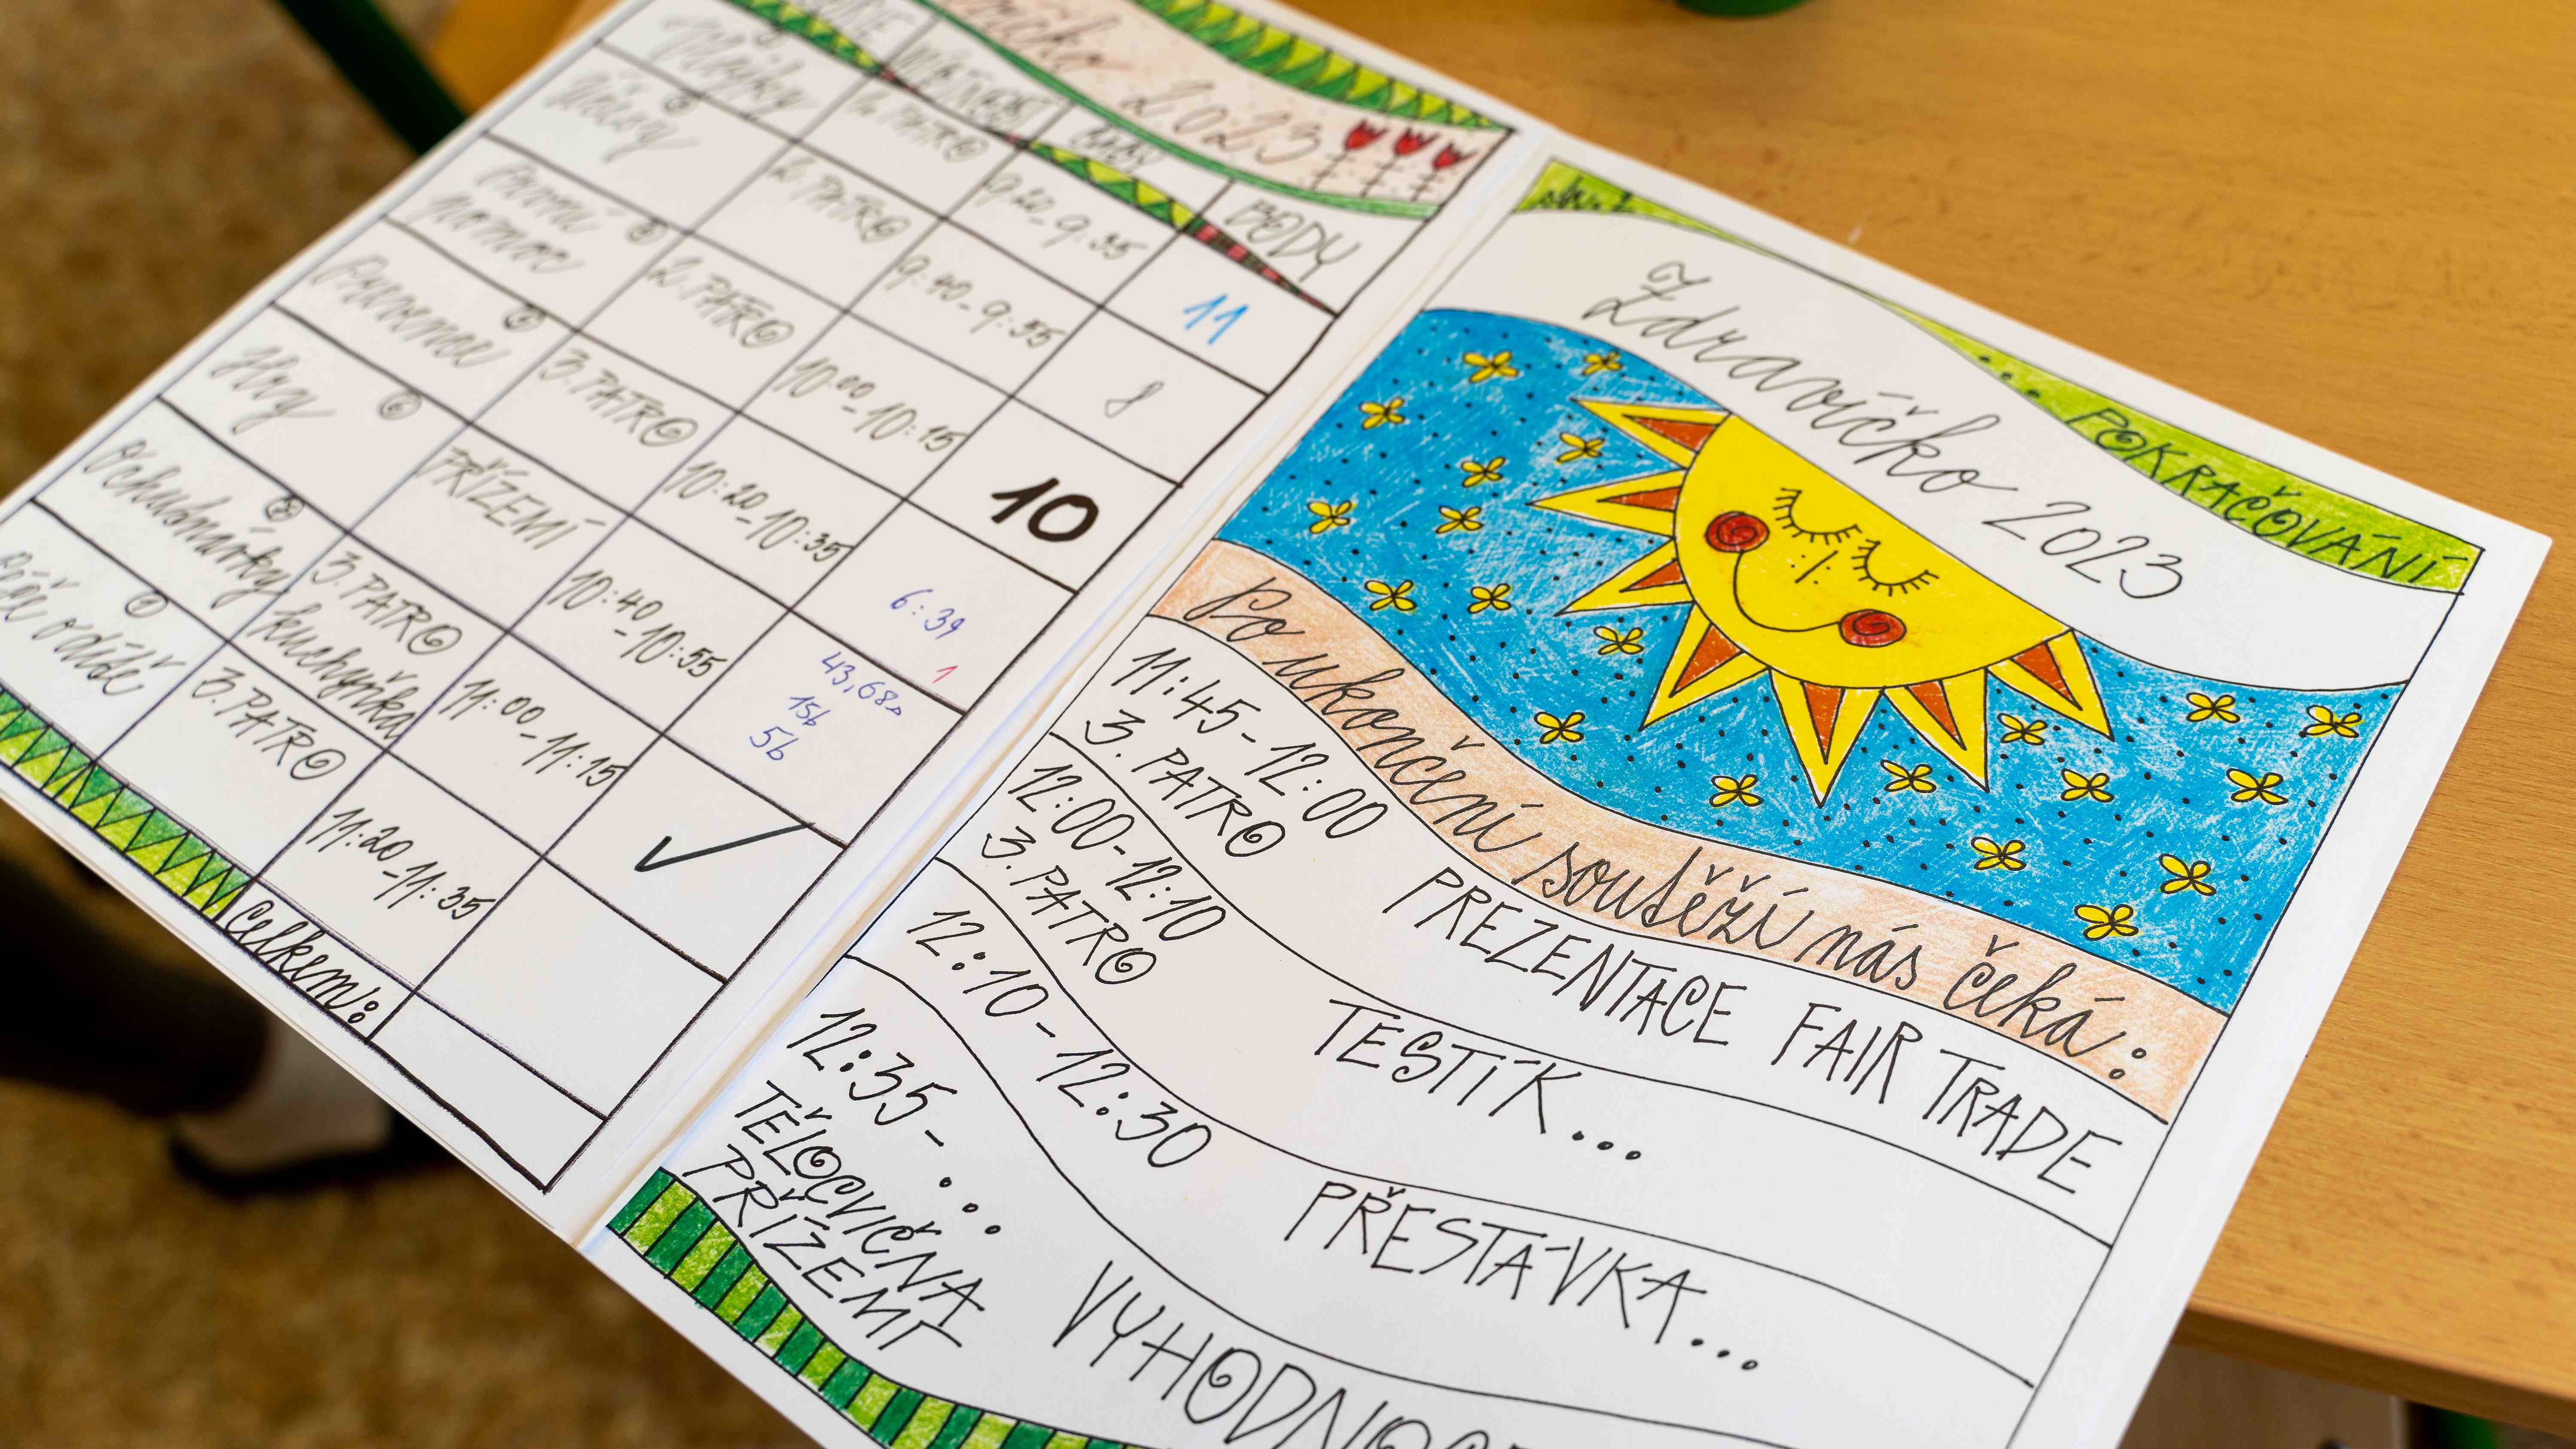 2023
MÍSTNOST
ČAS
BODY
1. PATRO
9:20-9:35
11
2. PATRO
9:40-9:55
8
První pomoc
3
2. PATRO
10:00-10:15
10
4
3. PATRO
10:20-10:35
6:39
1
Hry
5
PŘÍZEMÍ
10:40-10:55
43,68s
15b
5b
Pochudmínky
6
3. PATRO
kuchyňka
11:00-11:15
✓
Péče o dítě
7
3. PATRO
11:20-11:35
Celkem:
str. 2
... POKRAČOVÁNÍ
Zdravíčko 2023
Po ukončení soutěží nás čeká:
11:45-12:00
3. PATRO
PREZENTACE FAIR TRADE
12:00-12:10
3. PATRO
TESTÍK...
12:10-12:30
PŘESTÁVKA...
12:35-...
TĚLOCVIČNA
PŘÍZEMÍ